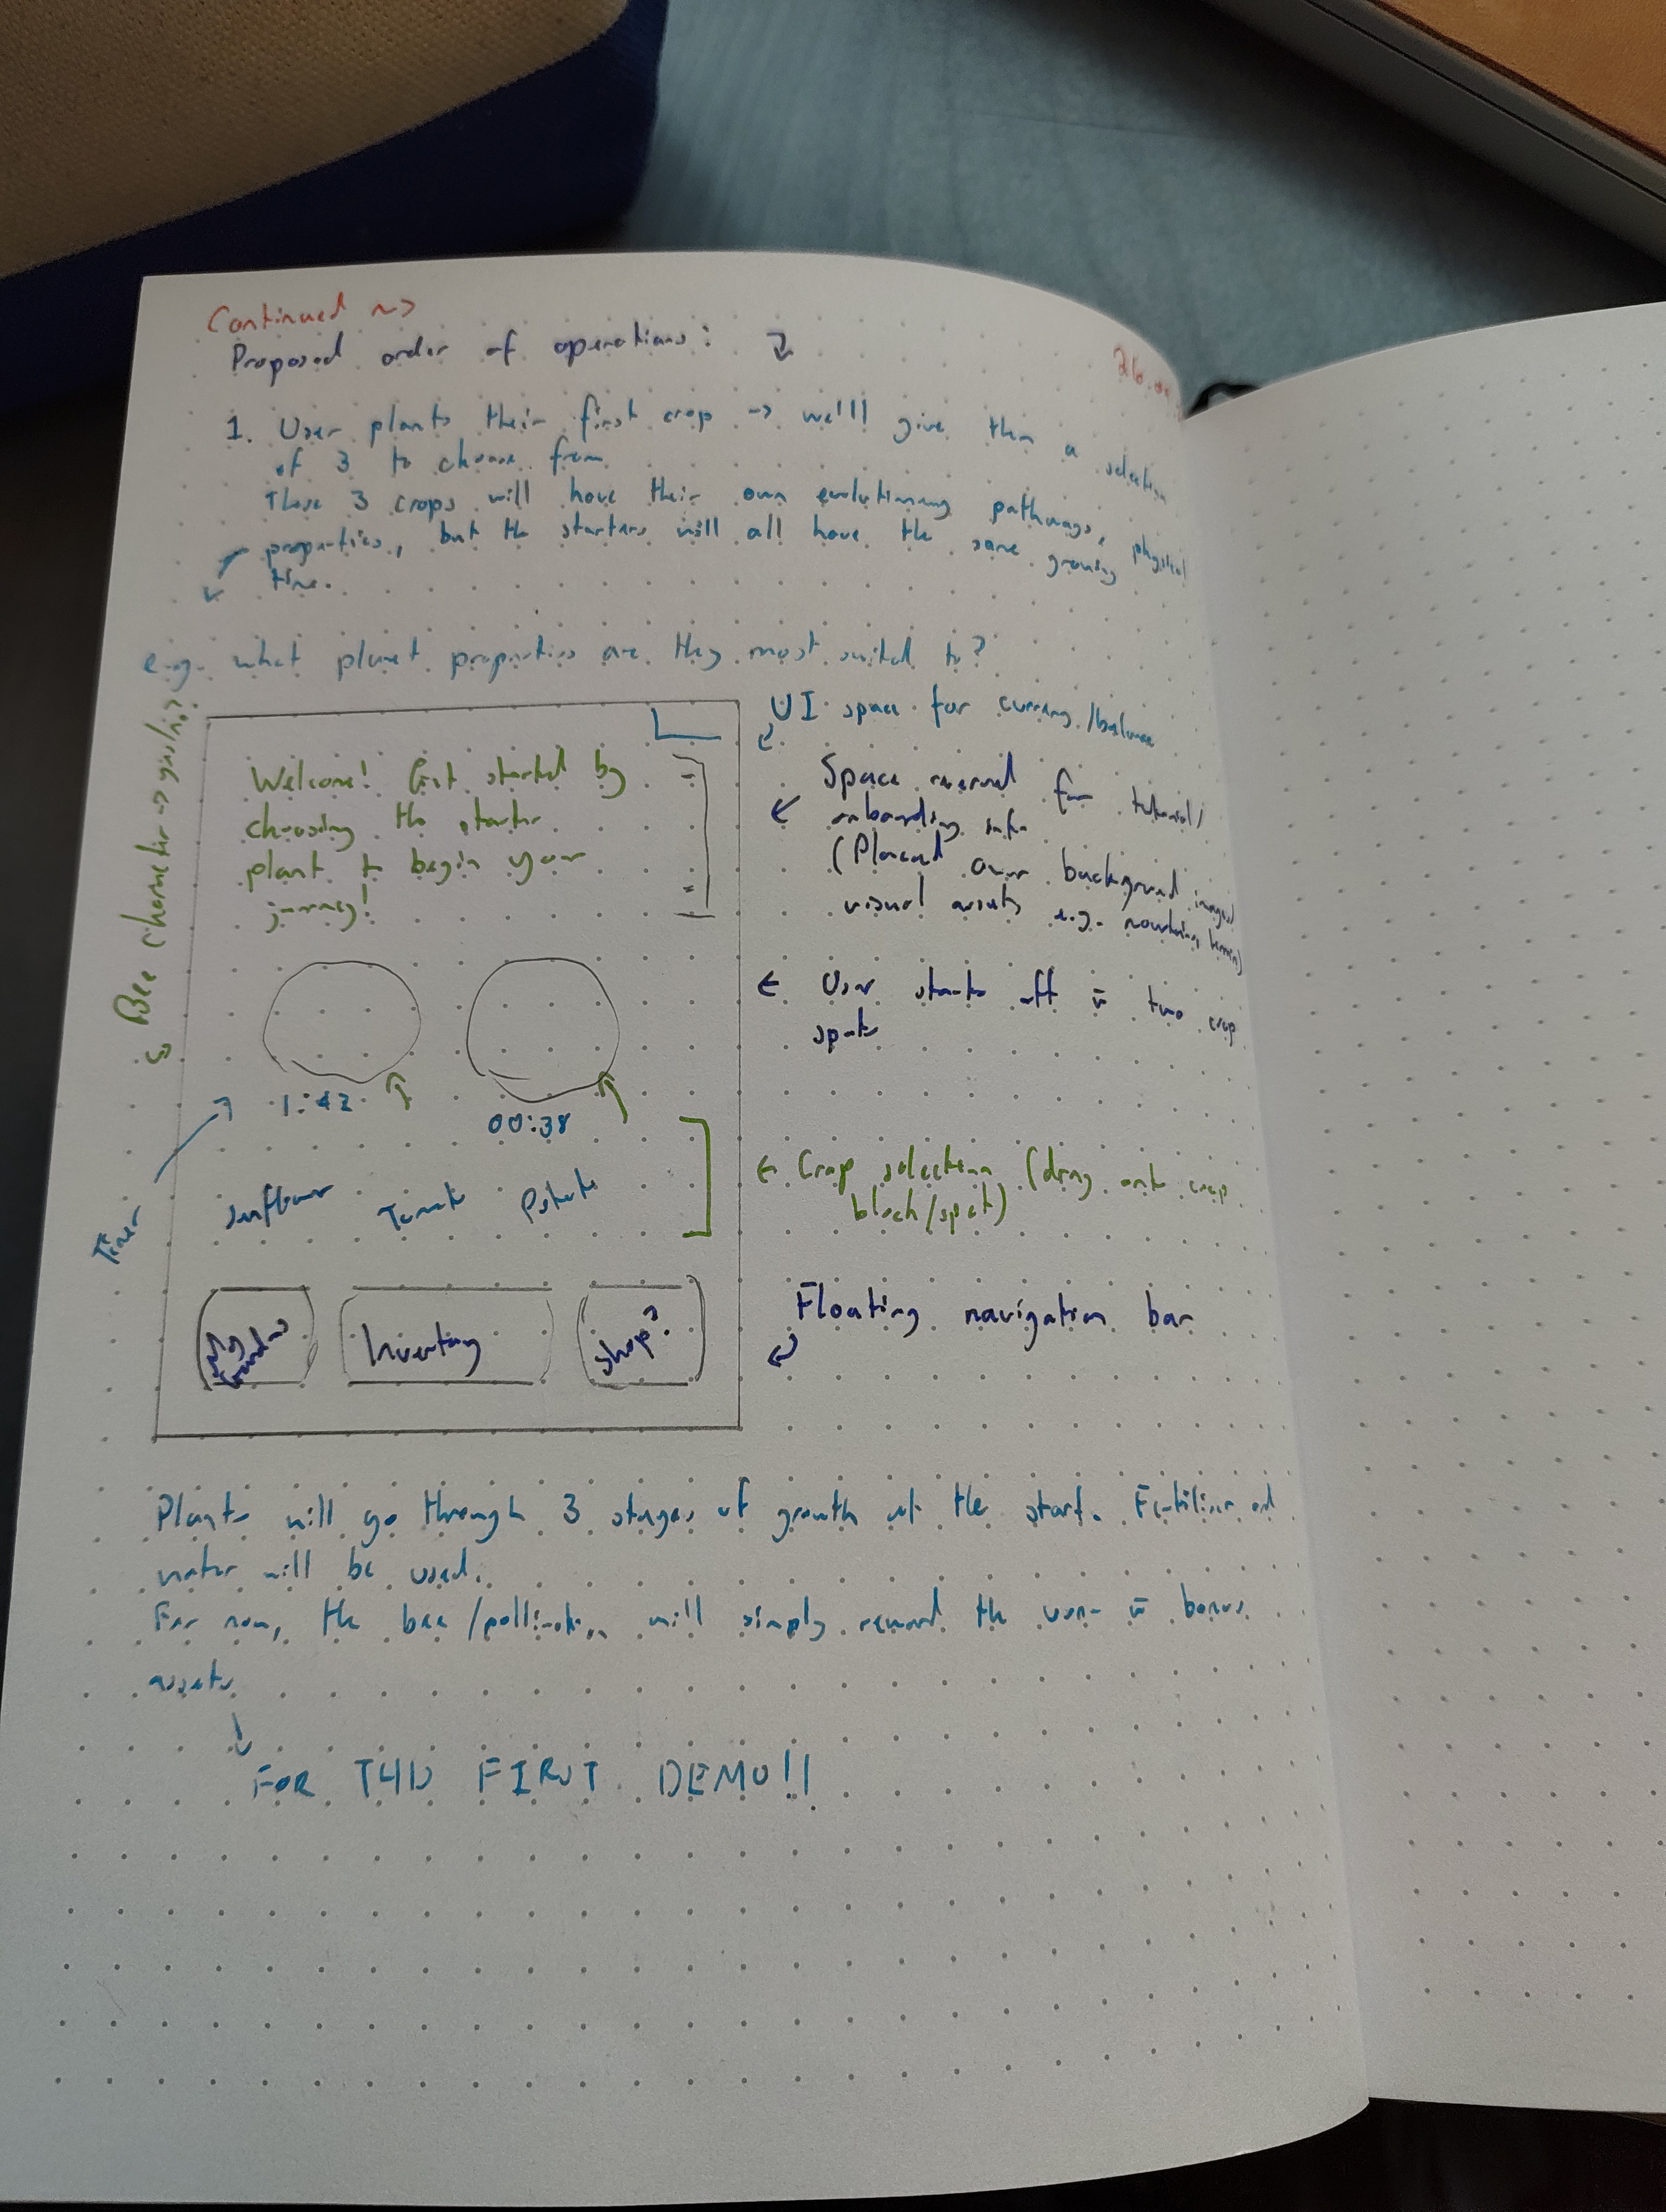 Continued ~>
26.0
Proposed order of operations:
1. User plants their first crop -> we'll give them a selection
of 3 to choose from
These 3 crops will have their own evolutionary pathways, physical
properties, but the starters will all have the same growing
time.
e.g. what planet properties are they most suited to?
UI space for currency/balance
Welcome! Get started by
choosing the starter
plant to begin your
journey!
Bee character -> guiding?
Space reserved for tutorial/
onboarding info
(Placed over background images/
visual assets e.g. mountains, terrain)
<- User starts off w̄ two crop
spots
1:42
00:38
Timer
Sunflower Tomato Potato
<- Crop selection (drag onto crop
block/spot)
My Garden
Inventory
Shop?
Floating navigation bar
Plants will go through 3 stages of growth at the start. Fertiliser and
water will be used.
For now, the bee/pollination will simply reward the user w̄ bonus
assets
FOR THIS FIRST DEMO!!